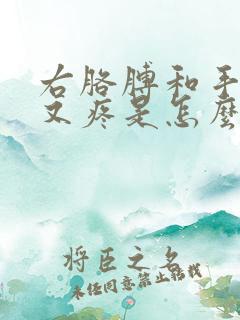 右胳膊和手
又疼是怎麼
将臣之名
未经同意禁止转载